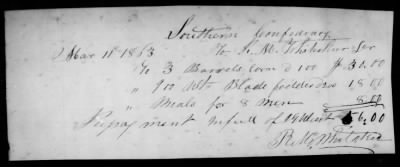 Southern Confederacy
Mar 11th 1863 To R. M. Whitaker Dr
To 3 Barrels Corn @ 1000 $30.00
" 900 lbs Blade fodder 200 18.00
" Meals for 8 men 8.00
Payment in full of $56.00
R. M. Whitaker